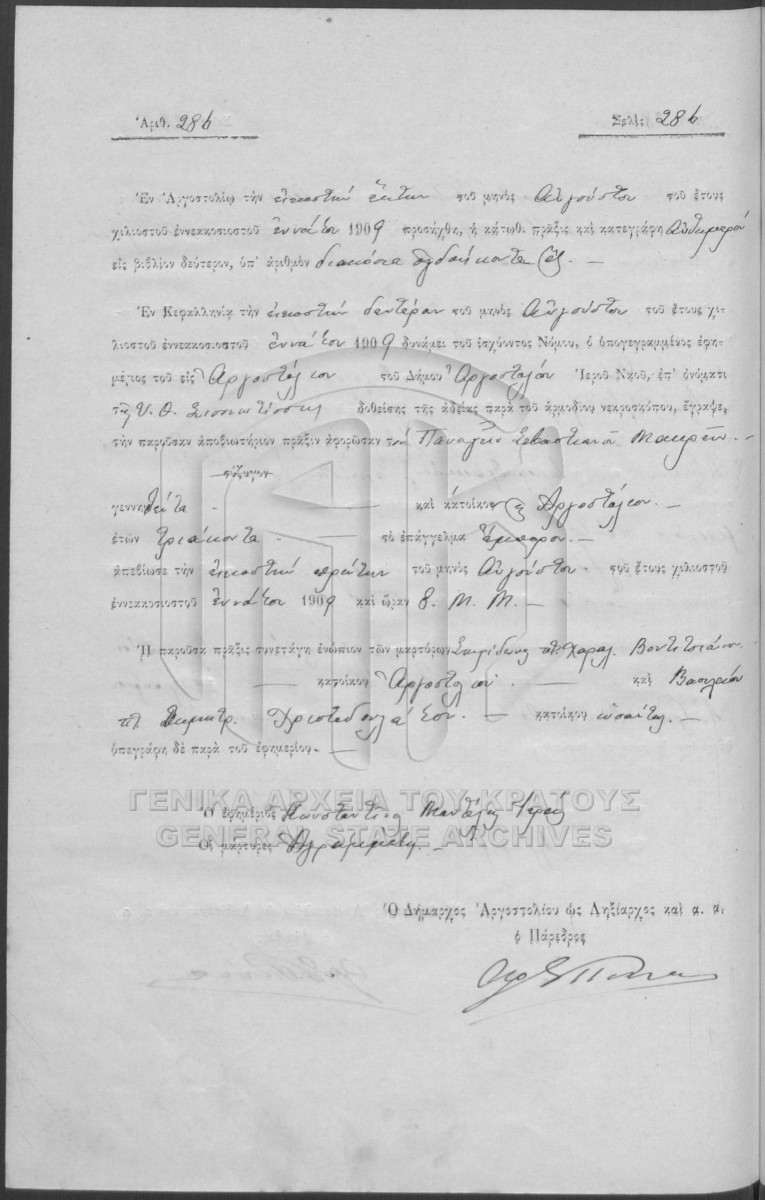 Ἀριθ. 286 Σελὶς 286
Ἐν Ἀργοστολίῳ τὴν εἰκοστὴν ἕκτην τοῦ μηνὸς Αὐγούστου τοῦ ἔτους
χιλιοστοῦ ἐννεακοσιοστοῦ ἐννάτου 1909 προσήχθη, ἡ κάτωθι πρᾶξις καὶ κατεγράφη αὐθημερόν
εἰς βιβλίον δεύτερον, ὑπ' ἀριθμὸν διακόσια ὀγδοήκοντα ἕξ. —
Ἐν Κεφαλληνίᾳ τὴν εἰκοστὴν δευτέραν τοῦ μηνὸς Αὐγούστου τοῦ ἔτους χι-
λιοστοῦ ἐννεακοσιοστοῦ ἐννάτου 1909 δυνάμει τοῦ ἰσχύοντος Νόμου, ὁ ὑπογεγραμμένος ἐφη-
μέριος τοῦ εἰς Ἀργοστόλιον τοῦ Δήμου Ἀργοστολίου Ἱεροῦ Ναοῦ, ἐπ' ὀνόματι
τῆς Υ. Θ. Σισσιωτίσσης δοθείσης τῆς ἀδείας παρὰ τοῦ ἁρμοδίου νεκροσκόπου, ἔγραψε,
τὴν παροῦσαν ἀποβιωτήριον πρᾶξιν ἀφορῶσαν τὸν Παναγῆν Σεβαστιανοῦ Μακρῆν —
σύζυγον
γεννηθέντα — καὶ κάτοικον Ἀργοστόλιον. —
ἐτῶν τριάκοντα — τὸ ἐπάγγελμα ἔμπορον. —
ἀπεβίωσε τὴν εἰκοστὴν πρώτην τοῦ μηνὸς Αὐγούστου τοῦ ἔτους χιλιοστοῦ
ἐννεακοσιοστοῦ ἐννάτου 1909 καὶ ὥραν 8. Μ. Μ. —
Ἡ παροῦσα πρᾶξις συνετάγη ἐνώπιον τῶν μαρτύρων Σπυρίδωνος π. Χαραλ.
— κατοίκου Ἀργοστολίου — καὶ Βασιλείου
π. Δημητρ. Χριστοδουλάτου. — κατοίκου ὡσαύτως. —
ὑπεγράφη δὲ παρὰ τοῦ ἐφημερίου. —
Ὁ ἐφημέριος Κωνσταντῖνος Ἱερεύς
Οἱ μάρτυρες Ἀγράμματοι —
ΓΕΝΙΚΑ ΑΡΧΕΙΑ ΤΟΥ ΚΡΑΤΟΥΣ
GENERAL STATE ARCHIVES
Ὁ Δήμαρχος Ἀργοστολίου ὡς Ληξίαρχος καὶ α. α.
ὁ Πάρεδρος